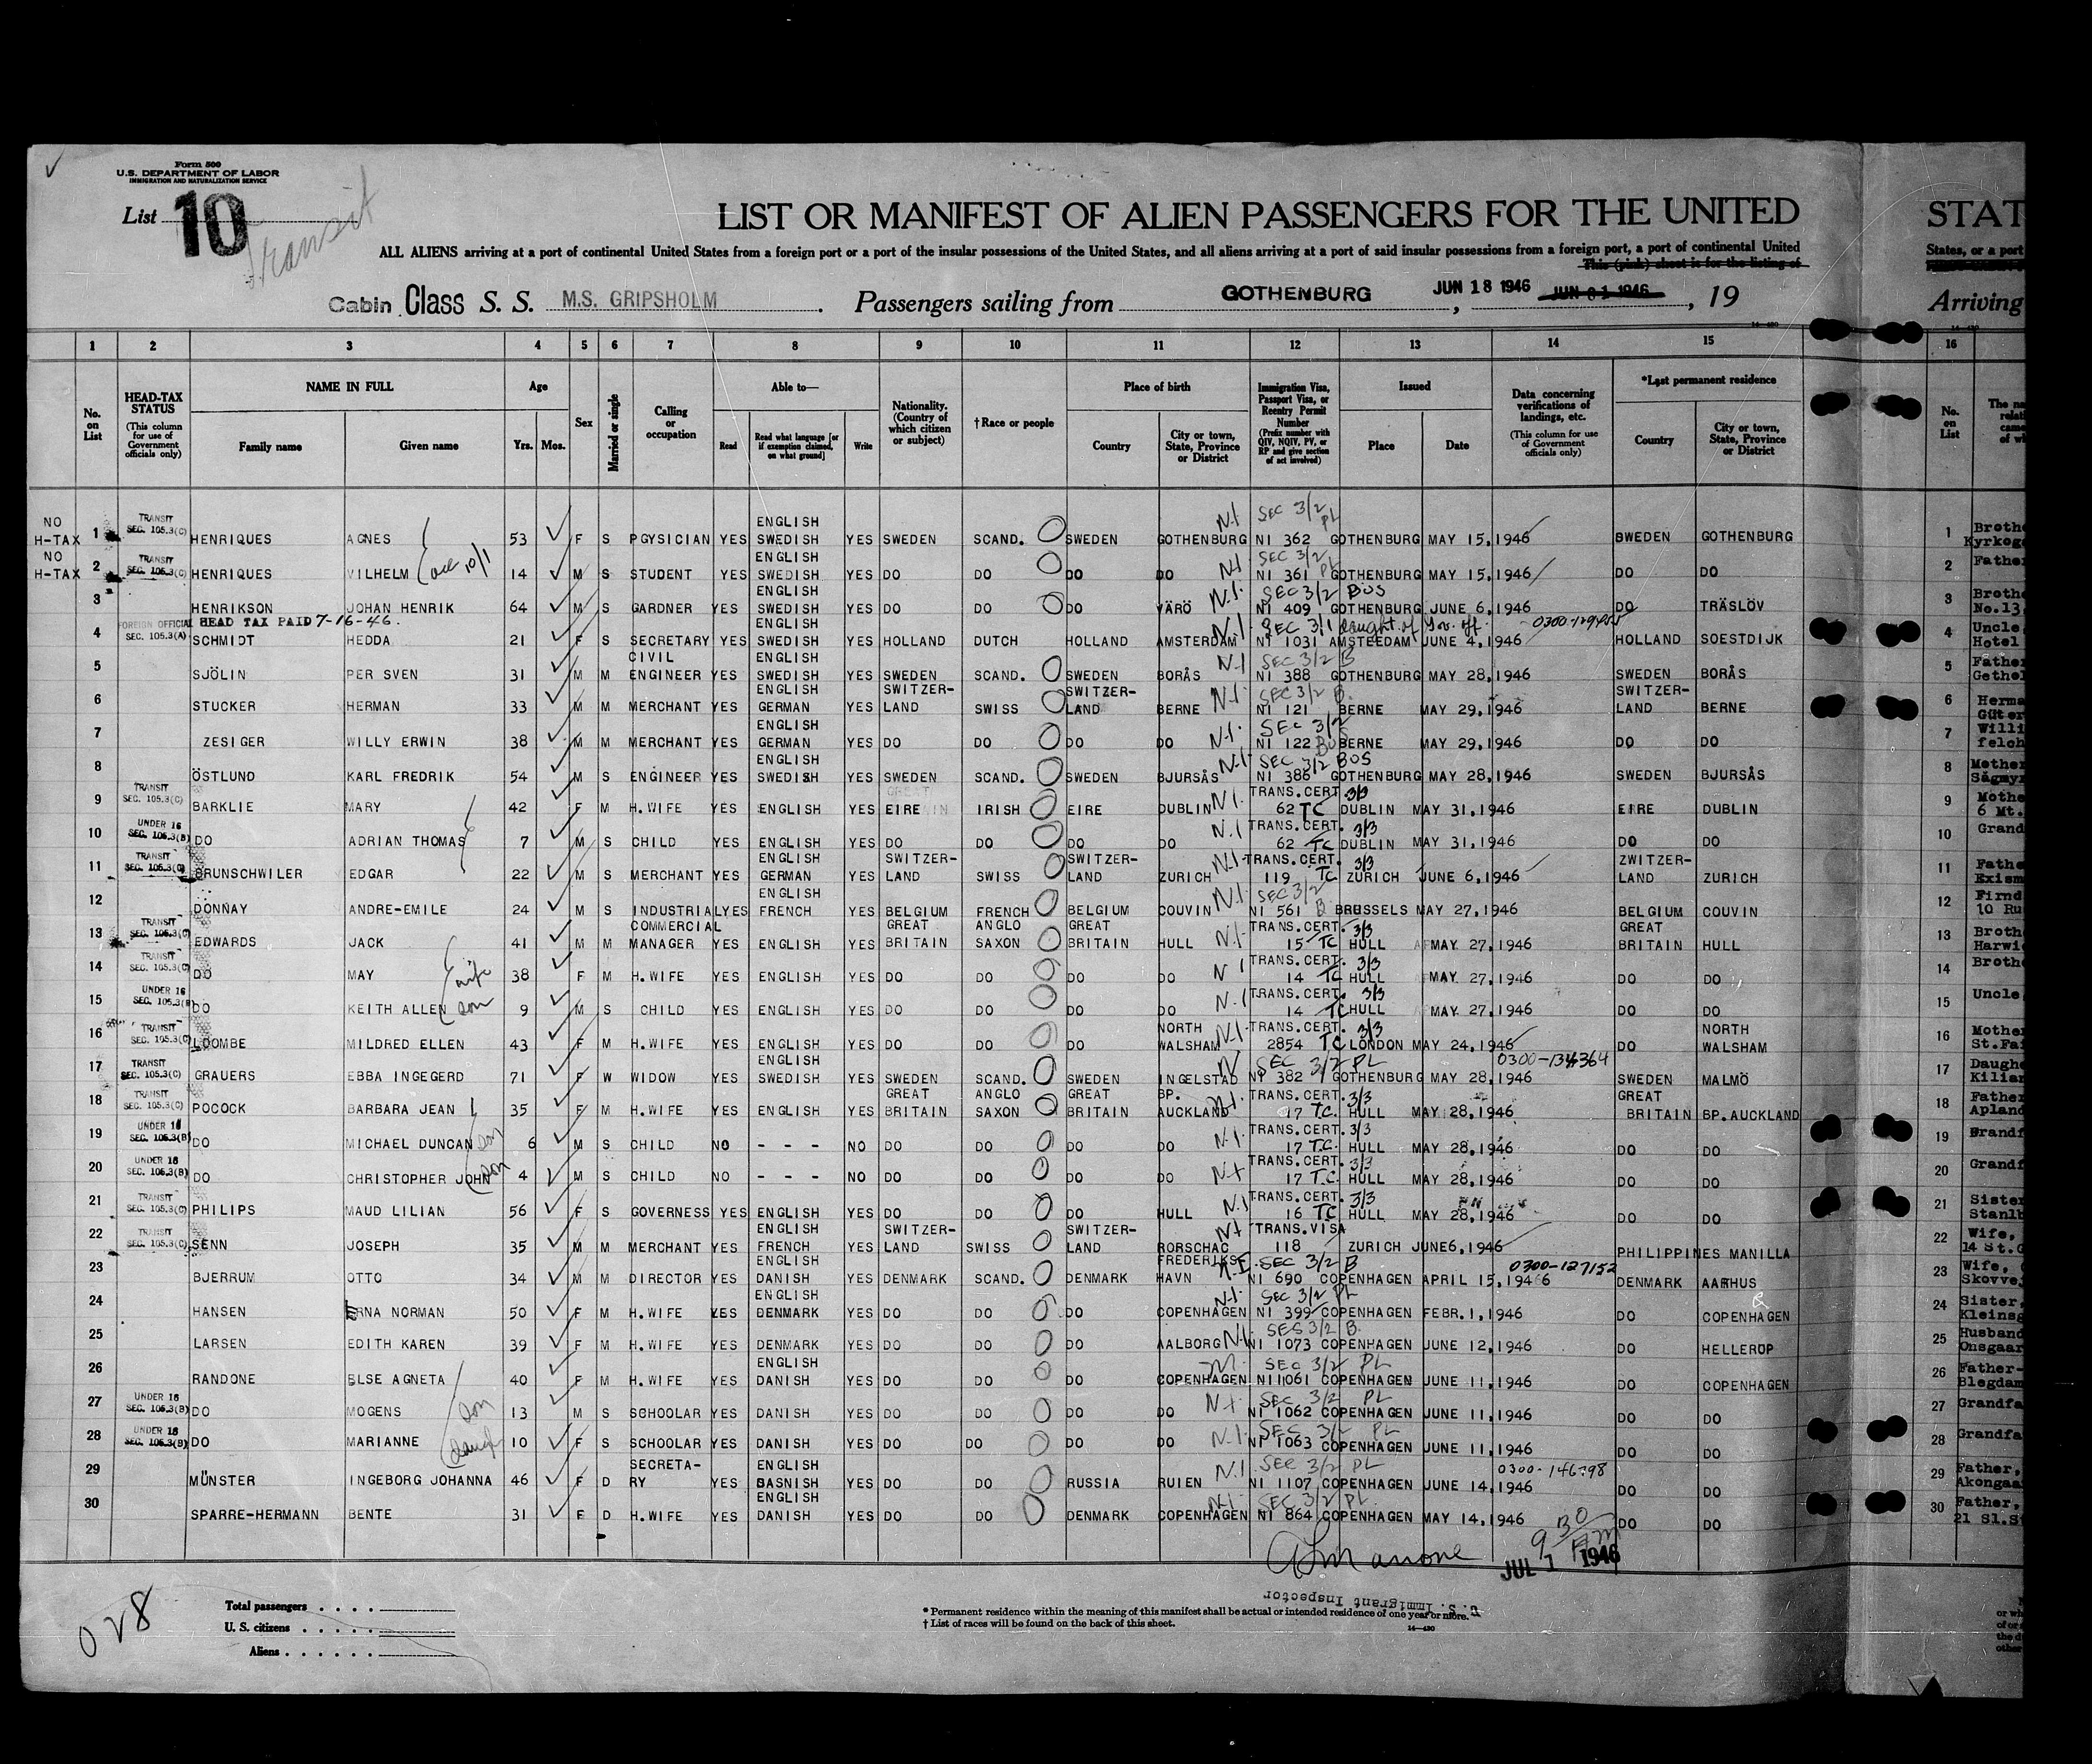 Form 500
U.S. DEPARTMENT OF LABOR
IMMIGRATION AND NATURALIZATION SERVICE
List 10
Transit
LIST OR MANIFEST OF ALIEN PASSENGERS FOR THE UNITED STAT
ALL ALIENS arriving at a port of continental United States from a foreign port or a port of the insular possessions of the United States, and all aliens arriving at a port of said insular possessions from a foreign port, a port of continental United States, or a port
This (pink) sheet is for the listing of
Cabin Class S. S. M.S. GRIPSHOLM. Passengers sailing from GOTHENBURG, JUN 18 1946 , 19 Arriving
1 2 3 4 5 6 7 8 9 10 11 12 13 14 15 16
No. on List
HEAD-TAX STATUS (This column for use of Government officials only)
NAME IN FULL Family name Given name
Age Yrs. Mos.
Sex
Married or single
Calling or occupation
Able to— Read Read what language [or if exemption claimed, on what ground] Write
Nationality. (Country of which citizen or subject)
† Race or people
Place of birth Country City or town, State, Province or District
Immigration Visa, Passport Visa, or Reentry Permit Number (Prefix number with QIV, NQIV, PV, or RP and give section of act involved)
Issued Place Date
Data concerning verifications of landings, etc. (This column for use of Government officials only)
*Last permanent residence Country City or town, State, Province or District
No. on List
NO H-TAX 1 TRANSIT SEC. 105.3(C) HENRIQUES AGNES 53 F S PGYSICIAN YES ENGLISH SWEDISH YES SWEDEN SCAND. SWEDEN GOTHENBURG N.I SEC 3/2 PL NI 362 GOTHENBURG MAY 15,1946 SWEDEN GOTHENBURG 1 Broth Kyrkog
NO H-TAX 2 TRANSIT SEC. 105.3(C) HENRIQUES VILHELM acc 10/1 14 M S STUDENT YES ENGLISH SWEDISH YES DO DO DO DO N.I SEC 3/2 PL NI 361 GOTHENBURG MAY 15,1946 DO DO 2 Father
3 HENRIKSON JOHAN HENRIK 64 M S GARDNER YES ENGLISH SWEDISH YES DO DO DO VÄRÖ N.I. SEC 3/2 BOS NI 409 GOTHENBURG JUNE 6,1946 DO TRÄSLÖV 3 Broth No.13
FOREIGN OFFICIAL HEAD TAX PAID 7-16-46.
4 SEC. 105.3(A) SCHMIDT HEDDA 21 F S SECRETARY YES ENGLISH SWEDISH YES HOLLAND DUTCH HOLLAND AMSTERDAM N.I SEC 3/1 NI 1031 AMSTEEDAM JUNE 4,1946 HOLLAND SOESTDIJK 4 Uncle Hotel
5 SJÖLIN PER SVEN 31 M M CIVIL ENGINEER YES ENGLISH SWEDISH YES SWEDEN SCAND. SWEDEN BORÅS N.I SEC 3/2 B NI 388 GOTHENBURG MAY 28,1946 SWEDEN BORÅS 5 Father Gethe
6 STUCKER HERMAN 33 M M MERCHANT YES ENGLISH GERMAN YES SWITZER-LAND SWISS SWITZER-LAND BERNE N.I. SEC 3/2 B. NI 121 BERNE MAY 29,1946 SWITZER-LAND BERNE 6 Herma Güter
7 ZESIGER WILLY ERWIN 38 M M MERCHANT YES ENGLISH GERMAN YES DO DO DO DO N.I. SEC 3/2 BOS NI 122 BERNE MAY 29,1946 DO DO 7 Willi felch
8 ÖSTLUND KARL FREDRIK 54 M S ENGINEER YES ENGLISH SWEDISH YES SWEDEN SCAND. SWEDEN BJURSÅS N.I SEC 3/2 BOS NI 386 GOTHENBURG MAY 28,1946 SWEDEN BJURSÅS 8 Mother Sägmyr
9 TRANSIT SEC. 105.3(C) BARKLIE MARY 42 F M H.WIFE YES ENGLISH YES EIRE IRISH EIRE DUBLIN N.I. TRANS.CERT. 3/3 62 TC DUBLIN MAY 31,1946 EIRE DUBLIN 9 Mothe 6 Mt.
10 UNDER 16 SEC. 105.3(B) DO ADRIAN THOMAS 7 M S CHILD YES ENGLISH YES DO DO DO DO N.I TRANS.CERT. 3/3 62 TC DUBLIN MAY 31,1946 DO DO 10 Grand
11 TRANSIT SEC. 105.3(C) BRUNSCHWILER EDGAR 22 M S MERCHANT YES ENGLISH GERMAN YES SWITZER-LAND SWISS SWITZER-LAND ZURICH N.I TRANS.CERT. 3/3 119 TC ZURICH JUNE 6,1946 ZWITZER-LAND ZURICH 11 Fathe Exism
12 DONNAY ANDRE-EMILE 24 M S INDUSTRIAL YES ENGLISH FRENCH YES BELGIUM FRENCH BELGIUM COUVIN N.I. SEC 3/2 B NI 561 BRUSSELS MAY 27,1946 BELGIUM COUVIN 12 Firnd 10 Ru
13 TRANSIT SEC. 105.3(C) EDWARDS JACK 41 M M COMMERCIAL MANAGER YES ENGLISH YES GREAT BRITAIN ANGLO SAXON GREAT BRITAIN HULL N.I. TRANS.CERT. 3/3 15 TC HULL MAY 27,1946 GREAT BRITAIN HULL 13 Broth Harwi
14 TRANSIT SEC. 105.3(C) DO MAY wife 38 F M H.WIFE YES ENGLISH YES DO DO DO DO N.I TRANS.CERT. 3/3 14 TC HULL MAY 27,1946 DO DO 14 Brothe
15 UNDER 16 SEC. 105.3(B) DO KEITH ALLEN son 9 M S CHILD YES ENGLISH YES DO DO DO DO N.I TRANS.CERT. 3/3 14 TC HULL MAY 27,1946 DO DO 15 Uncle
16 TRANSIT SEC. 105.3(C) LOOMBE MILDRED ELLEN 43 F M H.WIFE YES ENGLISH YES DO DO DO NORTH WALSHAM N.I TRANS.CERT. 3/3 2854 TC LONDON MAY 24,1946 DO NORTH WALSHAM 16 Mother St.Fai
17 TRANSIT SEC. 105.3(C) GRAUERS EBBA INGEGERD 71 F W WIDOW YES ENGLISH SWEDISH YES SWEDEN SCAND. SWEDEN INGELSTAD SEC 3/2 PL NI 382 GOTHENBURG MAY 28,1946 0300-134364 SWEDEN MALMÖ 17 Daugh Kilian
18 TRANSIT SEC. 105.3(C) POCOCK BARBARA JEAN 35 F M H.WIFE YES ENGLISH YES GREAT BRITAIN ANGLO SAXON GREAT BRITAIN BP. AUCKLAND N.I. TRANS.CERT. 3/3 17 T.C. HULL MAY 28,1946 GREAT BRITAIN BP.AUCKLAND 18 Father Apland
19 UNDER 16 SEC. 105.3(B) DO MICHAEL DUNCAN son 6 M S CHILD NO - - - NO DO DO DO DO N.I. TRANS.CERT. 3/3 17 T.C. HULL MAY 28,1946 DO DO 19 Grandf
20 UNDER 16 SEC. 105.3(B) DO CHRISTOPHER JOHN son 4 M S CHILD NO - - - NO DO DO DO DO N.I TRANS.CERT. 3/3 17 T.C. HULL MAY 28,1946 DO DO 20 Grandf
21 TRANSIT SEC. 105.3(C) PHILIPS MAUD LILIAN 56 F S GOVERNESS YES ENGLISH YES DO DO DO HULL N.I TRANS.CERT. 3/3 16 TC HULL MAY 28,1946 DO DO 21 Sister Stanlb
22 TRANSIT SEC. 105.3(C) SENN JOSEPH 35 M M MERCHANT YES ENGLISH FRENCH YES SWITZER-LAND SWISS SWITZER-LAND RORSCHAC N.I TRANS.VISA 118 ZURICH JUNE6,1946 PHILIPPINES MANILLA 22 Wife, 14 St.
23 BJERRUM OTTO 34 M M DIRECTOR YES ENGLISH DANISH YES DENMARK SCAND. DENMARK FREDERIKS HAVN N.I. SEC 3/2 B NI 690 COPENHAGEN APRIL 15,1946 0300-127152 DENMARK AARHUS 23 Wife, Skovve
24 HANSEN ERNA NORMAN 50 F M H.WIFE YES ENGLISH DENMARK YES DO DO DO COPENHAGEN N.I. SEC 3/2 PL NI 399 COPENHAGEN FEBR.1,1946 DO COPENHAGEN 24 Sister, Kleinsg
25 LARSEN EDITH KAREN 39 F M H.WIFE YES DENMARK YES DO DO DO AALBORG N.I. SES 3/2 B. NI 1073 COPENHAGEN JUNE 12,1946 DO HELLEROP 25 Husband Onsgaar
26 RANDONE ELSE AGNETA 40 F M H.WIFE YES ENGLISH DANISH YES DO DO DO COPENHAGEN SEC 3/2 PL NI 1061 COPENHAGEN JUNE 11,1946 DO COPENHAGEN 26 Father- Blegdam
27 UNDER 16 SEC. 105.3(B) DO MOGENS son 13 M S SCHOOLAR YES DANISH YES DO DO DO DO N.I. SEC 3/2 PL NI 1062 COPENHAGEN JUNE 11,1946 DO DO 27 Grandfa
28 UNDER 16 SEC. 105.3(B) DO MARIANNE daugh 10 F S SCHOOLAR YES DANISH YES DO DO DO DO N.I. SEC 3/2 PL NI 1063 COPENHAGEN JUNE 11,1946 DO DO 28 Grandfa
29 MÜNSTER INGEBORG JOHANNA 46 F D SECRETA-RY YES ENGLISH DASNISH YES DO DO RUSSIA RUIEN N.I SEC 3/2 PL NI 1107 COPENHAGEN JUNE 14,1946 DO DO 29 Father, Akongaa
30 SPARRE-HERMANN BENTE 31 F D H.WIFE YES ENGLISH DANISH YES DO DO DENMARK COPENHAGEN N.I. SEC 3/2 PL. NI 864 COPENHAGEN MAY 14,1946 DO DO 30 Father, 21 Sl.S
9 30 AM
JUL 1 1946
U. S. Immigrant Inspector
028
Total passengers
U. S. citizens
Aliens
* Permanent residence within the meaning of this manifest shall be actual or intended residence of one year or more.
† List of races will be found on the back of this sheet.
14—430